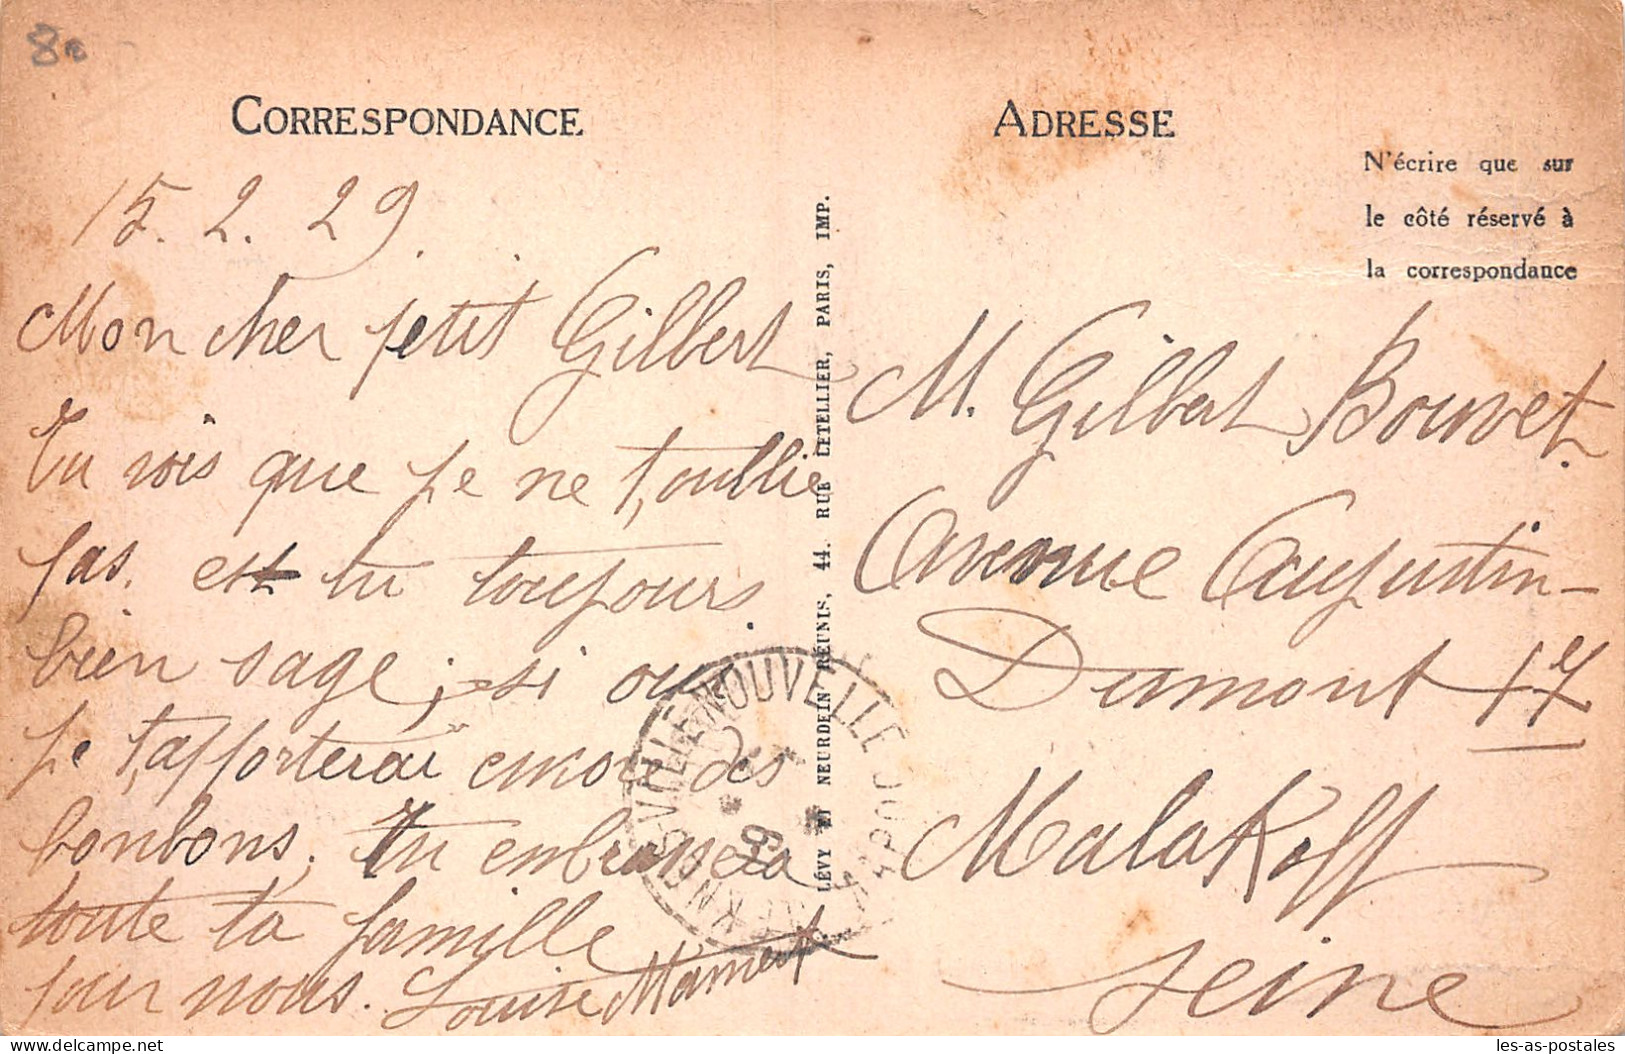 8e
CORRESPONDANCE
15. 2. 29.
Mon cher petit Gilbert
Tu vois que je ne t'oublie
pas. est tu toujours
bien sage; si oui
je t'apporterai encor des
bonbons. Tu embrassera
toute ta famille
pour nous. Louise Mamert
LÉVY ET NEURDEIN RÉUNIS, 44. RUE LETELLIER, PARIS, IMP.
VILLENOUVELLE
ADRESSE
N'écrire que sur
le côté réservé à
la correspondance
M. Gilbert Bouvet.
Avenue Augustin-
Dumont 17
Malakoff
Seine
delcampe.net
les-as-postales